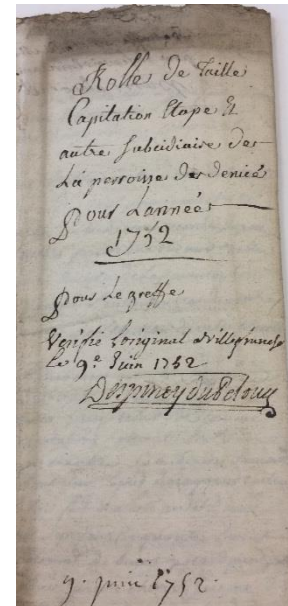 Rolle de Taille
Capitation Etape &
autre subcidiaire de
La perroisse de denicé
Pour Lannée
1752
Pour Le greffe
Verifié Loriginal a villefranche
Le 9.e Juin 1752
9. juin 1752.